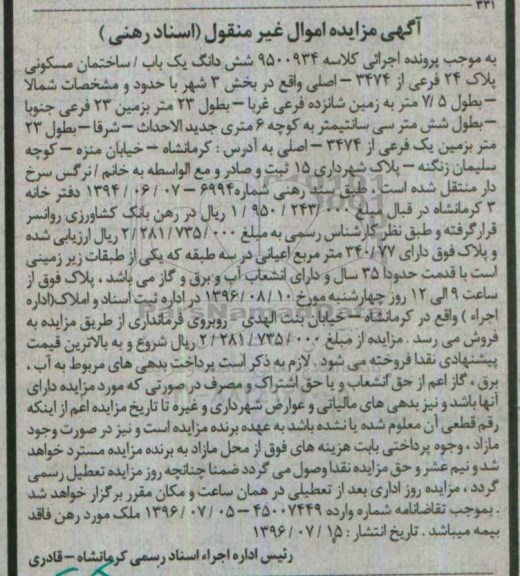 ۳۳۱
آگهی مزایده اموال غیر منقول (اسناد رهنی)
به موجب پرونده اجرائی کلاسه ۹۵۰۰۹۳۴ شش دانگ یک باب / ساختمان مسکونی
پلاک ۲۴ فرعی از ۳۴۷۴ – اصلی واقع در بخش ۳ شهر با حدود و مشخصات شمالا
– بطول ۷/۵ متر به زمین شانزده فرعی غربا – بطول ۲۳ متر بزمین ۲۳ فرعی جنوبا
– بطول شش متر سی سانتیمتر به کوچه ۶ متری جدید الاحداث – شرقا – بطول ۲۳
متر بزمین یک فرعی از ۳۴۷۴ – اصلی به آدرس : کرمانشاه – خیابان منزه – کوچه
سلیمان زنگنه – پلاک شهرداری ۱۵ ثبت و صادر و مع الواسطه به خانم / نرگس سرخ
دار منتقل شده است . طبق سند رهنی شماره ۶۹۹۴ – ۰۷ / ۰۶ / ۱۳۹۴ دفتر خانه
۳ کرمانشاه در قبال مبلغ ۰۰۰/ ۲۴۳/ ۹۵۰/ ۱ ریال در رهن بانک کشاورزی روانسر
قرار گرفته و طبق نظر کارشناس رسمی به مبلغ ۰۰۰/ ۷۳۵/ ۲۸۱/ ۲ ریال ارزیابی شده
و پلاک فوق دارای ۳۴۰/۷۷ متر مربع اعیانی در سه طبقه که یکی از طبقات زیر زمینی
است با قدمت حدوداً ۳۵ سال و دارای انشعاب آب و برق و گاز می باشد ، پلاک فوق از
ساعت ۹ الی ۱۲ روز چهارشنبه مورخ ۱۰ / ۰۸ / ۱۳۹۶ در اداره ثبت اسناد و املاک (اداره
اجراء ) واقع در کرمانشاه – خیابان بنت الهدی – روبروی فرمانداری از طریق مزایده به
فروش می رسد . مزایده از مبلغ ۰۰۰/ ۷۳۵/ ۲۸۱/ ۲ ریال شروع و به بالاترین قیمت
پیشنهادی نقدا فروخته می شود . لازم به ذکر است پرداخت بدهی های مربوط به آب ،
برق ، گاز اعم از حق انشعاب و یا حق اشتراک و مصرف در صورتی که مورد مزایده دارای
آنها باشد و نیز بدهی های مالیاتی و عوارض شهرداری و غیره تا تاریخ مزایده اعم از اینکه
رقم قطعی آن معلوم شده یا نشده باشد به عهده برنده مزایده است و نیز در صورت وجود
مازاد ، وجوه پرداختی بابت هزینه های فوق از محل مازاد به برنده مزایده مسترد خواهد
شد و نیم عشر و حق مزایده نقدا وصول می گردد ضمنا چنانچه روز مزایده تعطیل رسمی
گردد ، مزایده روز اداری بعد از تعطیلی در همان ساعت و مکان مقرر برگزار خواهد شد
. بموجب تقاضانامه شماره وارده ۴۵۰۰۷۴۴۹ – ۰۵ / ۰۷ / ۱۳۹۶ ملک مورد رهن فاقد
بیمه میباشد . تاریخ انتشار : ۱۵ / ۰۷ / ۱۳۹۶
رئیس اداره اجراء اسناد رسمی کرمانشاه – قادری